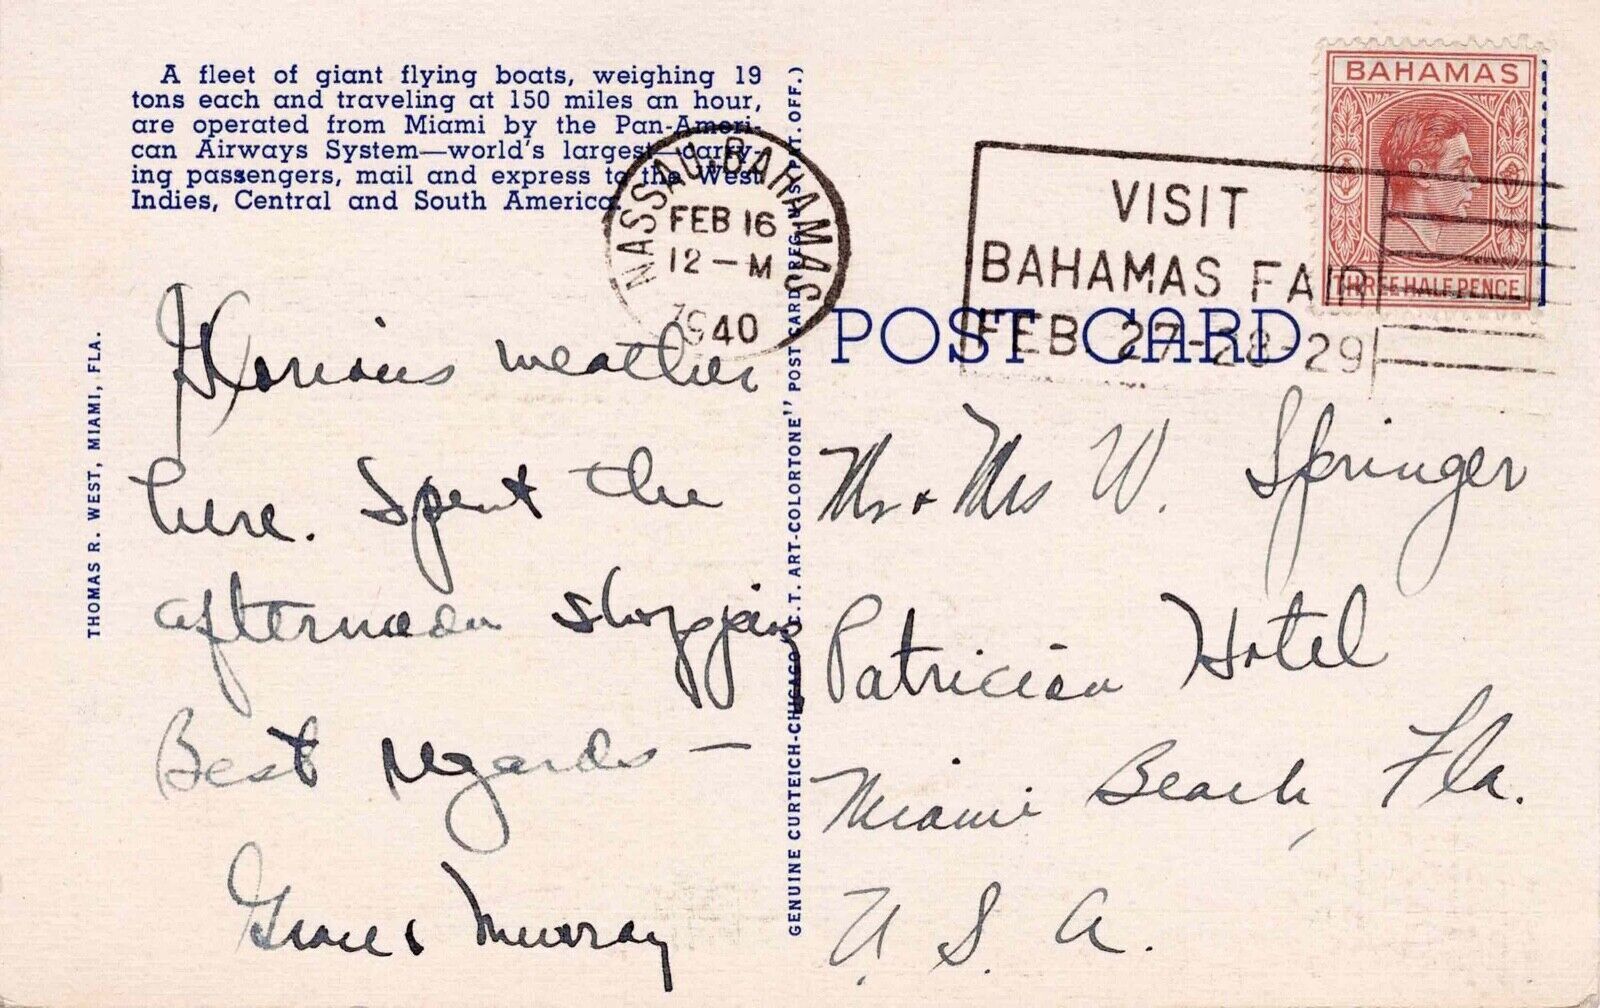 A fleet of giant flying boats, weighing 19
tons each and traveling at 150 miles an hour,
are operated from Miami by the Pan-Ameri-
can Airways System—world's largest—carry-
ing passengers, mail and express to the West
Indies, Central and South America.
NASSAU·BAHAMAS
FEB 16
12—M
1940
VISIT
BAHAMAS FAIR
FEB. 27-28-29
BAHAMAS
THREE HALF PENCE
POST CARD
THOMAS R. WEST, MIAMI, FLA.
GENUINE CURTEICH-CHICAGO "C.T. ART-COLORTONE" POST CARD (REG. U.S. PAT. OFF.)
Glorious weather
here. Spent the
afternoon shopping
Best regards —
Grace & Murray
Mr & Mrs W. Springer
Patrician Hotel
Miami Beach, Fla.
U. S. A.